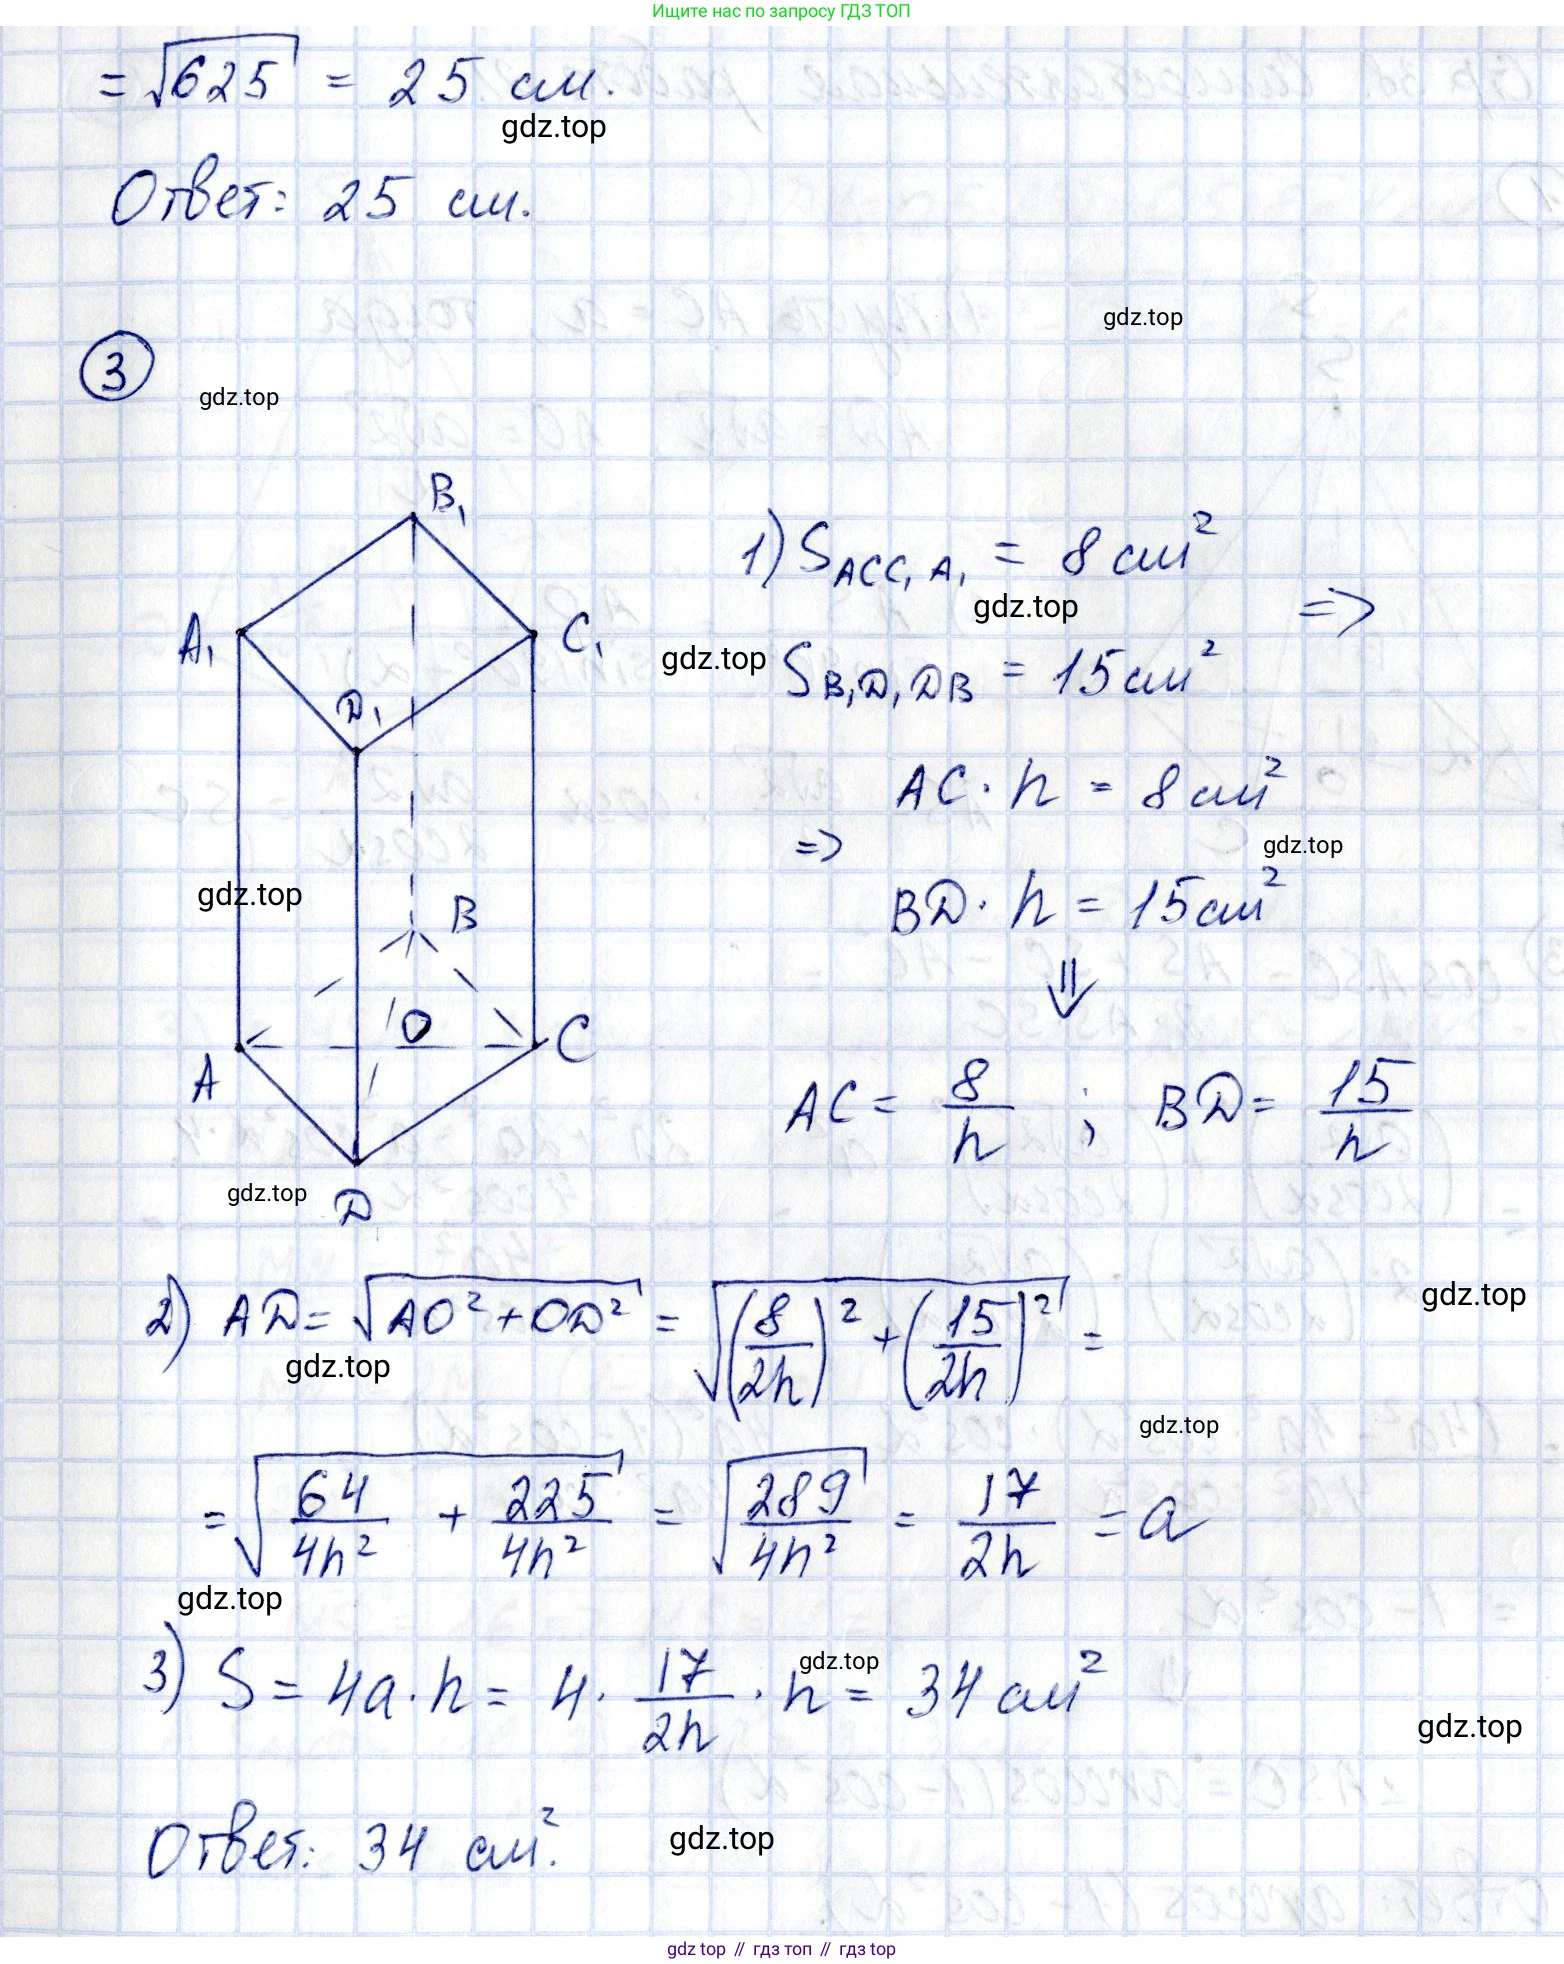 Ищите нас по запросу ГДЗ ТОП
= √625 = 25 см.
gdz.top
Ответ: 25 см.
gdz.top
3
gdz.top
B₁
1) S_ACC₁A₁ = 8 см²
gdz.top
=>
A₁
C₁
gdz.top
S_B₁D₁DB = 15 см²
D₁
AC · h = 8 см²
=>
gdz.top
gdz.top
B
BD · h = 15 см²
⇓
O
A
C
AC = 8/h ; BD = 15/h
gdz.top
D
2) AD = √(AO² + OD²) = √((8/2h)² + (15/2h)²) =
gdz.top
gdz.top
gdz.top
= √(64/4h² + 225/4h²) = √(289/4h²) = 17/2h = a
gdz.top
3) S = 4a · h = 4 · 17/2h · h = 34 см²
gdz.top
gdz.top
Ответ: 34 см².
gdz.top
gdz top // гдз топ // гдз top